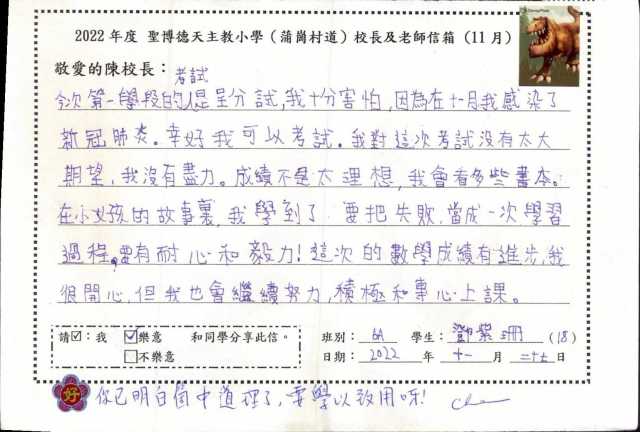 2022 年度 聖博德天主教小學（蒲崗村道）校長及老師信箱（11 月）
敬愛的陳校長：
考試
今次第一學段的是呈分試，我十分害怕，因為在十一月我感染了
新冠肺炎。幸好我可以考試。我對這次考試沒有太大
期望，我沒有盡力。成績不是太理想，我會看多些書本。
在小女孩的故事裏，我學到了要把失敗，當成一次學習
過程，要有耐心和毅力！這次的數學成績有進步，我
很開心，但我也會繼續努力，積極和專心上課。
請☑：我 ☑樂意 和同學分享此信。
□不樂意
班別： 6A 學生： 鄧紫珊 (18)
日期： 2022 年 十一 月 二十七 日
好 你已明白箇中道理了，要學以致用呀！